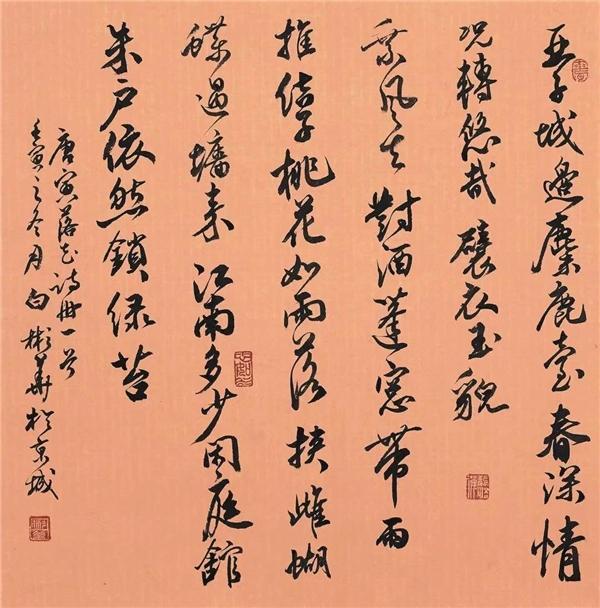 亞字城邊麋鹿臺春深情
况轉悠哉襞衣玉貌
乘風去對酒蓬窓帶雨
推結子桃花如雨落挾雌蝴
蝶過墻来江南多少闲庭館
朱户依然鎖绿苔
唐寅落花詩冊一首
壬寅之冬月白彬華於京城